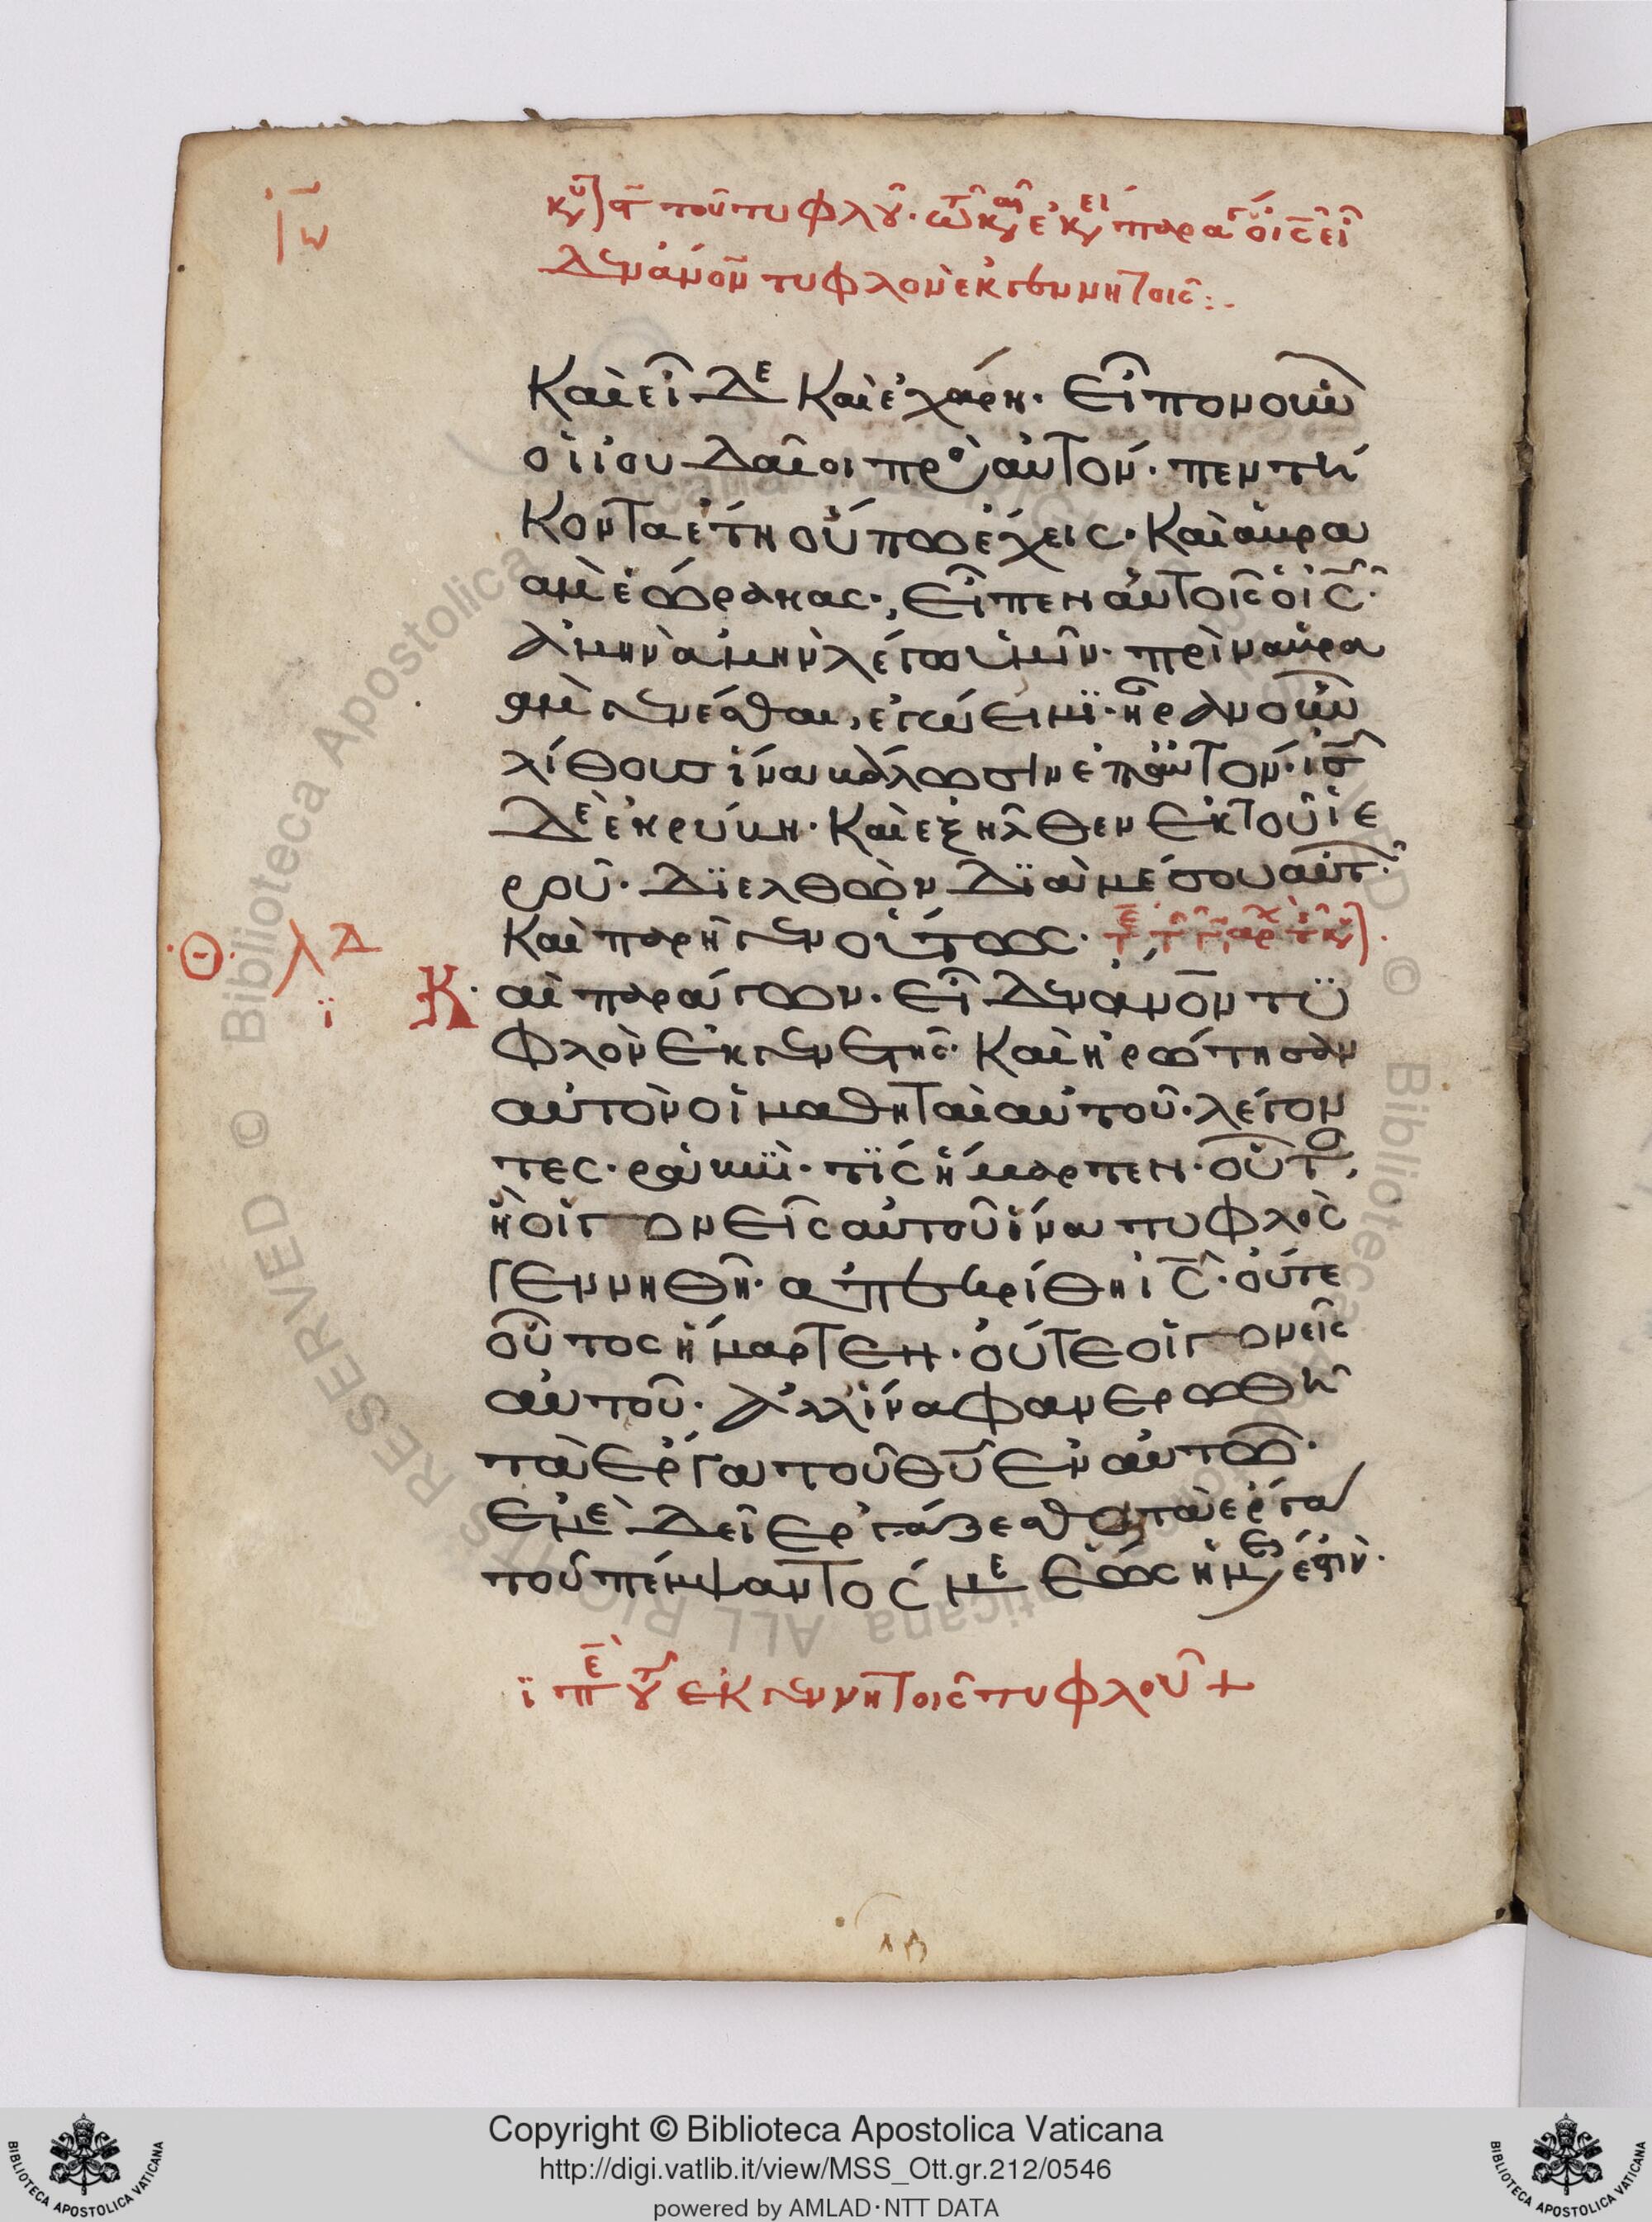 Ιω
κυ τοῦ τυφλοῦ. τῶ καιρῶ ἐκείνω παράγων ὁ ις εἶ
δεν ἀνον τυφλὸν ἐκ γεννητοῖς
καὶ εἶδε καὶ ἐχάρη. εἶπον οὖν
οἱ ἰουδαῖοι πρὸς αὐτόν. πεντή
κοντα ἔτη οὔπω ἔχεις. καὶ ἀβρα
ὰμ ἑώρακας., εἶπεν αὐτοῖς ὁ ις.
ἀμὴν ἀμὴν λέγω ὑμῖν. πρὶν ἀβρα
ὰμ γενέσθαι, ἐγώ εἰμϊ. ἦραν οὖν
λίθους ἵνα βάλωσιν ἐπ αὐτόν. ις
δὲ ἐκρύβη. καὶ ἐξῆλθεν ἐκ τοῦ ἱε
ροῦ. δϊελθὼν δϊὰ μέσου αὐτ.
καὶ παρῆγεν οὕτως.
Θ λδ
Καὶ παράγων. εἶδεν ἄνον τϋ
ϊ
φλὸν ἐκ γενετῆς. καὶ ἠρώτησαν
αὐτὸν οἱ μαθηταὶ αὐτοῦ. λέγον
τες. ραββϊ. τϊς ἥμαρτεν. οὗτο,
ἢ οἱ γονεῖς αὐτοῦ ἵνα τυφλὸς
γεννηθῆ. ἀπεκρίθη ις. οὔτε
οὗτος ἥμαρτεν. οὔτε οἱ γονεῖς
αὐτοῦ. ἀλλ ἵνα φανερωθῆ
τὰ ἔργα τοῦ θυ ἐν αὐτῶ.
ἐμὲ δεῖ ἐργάζεσθαι τὰ ἔργα
τοῦ πέμψαντός με ἕως ἡμέρα ἐστίν.
ϊ πε του ἐκ γεννητοῖς τυφλοῦ +
Copyright © Biblioteca Apostolica Vaticana
http://digi.vatlib.it/view/MSS_Ott.gr.212/0546
powered by AMLAD·NTT DATA
BIBLIOTECA APOSTOLICA VATICANA
BIBLIOTECA APOSTOLICA VATICANA